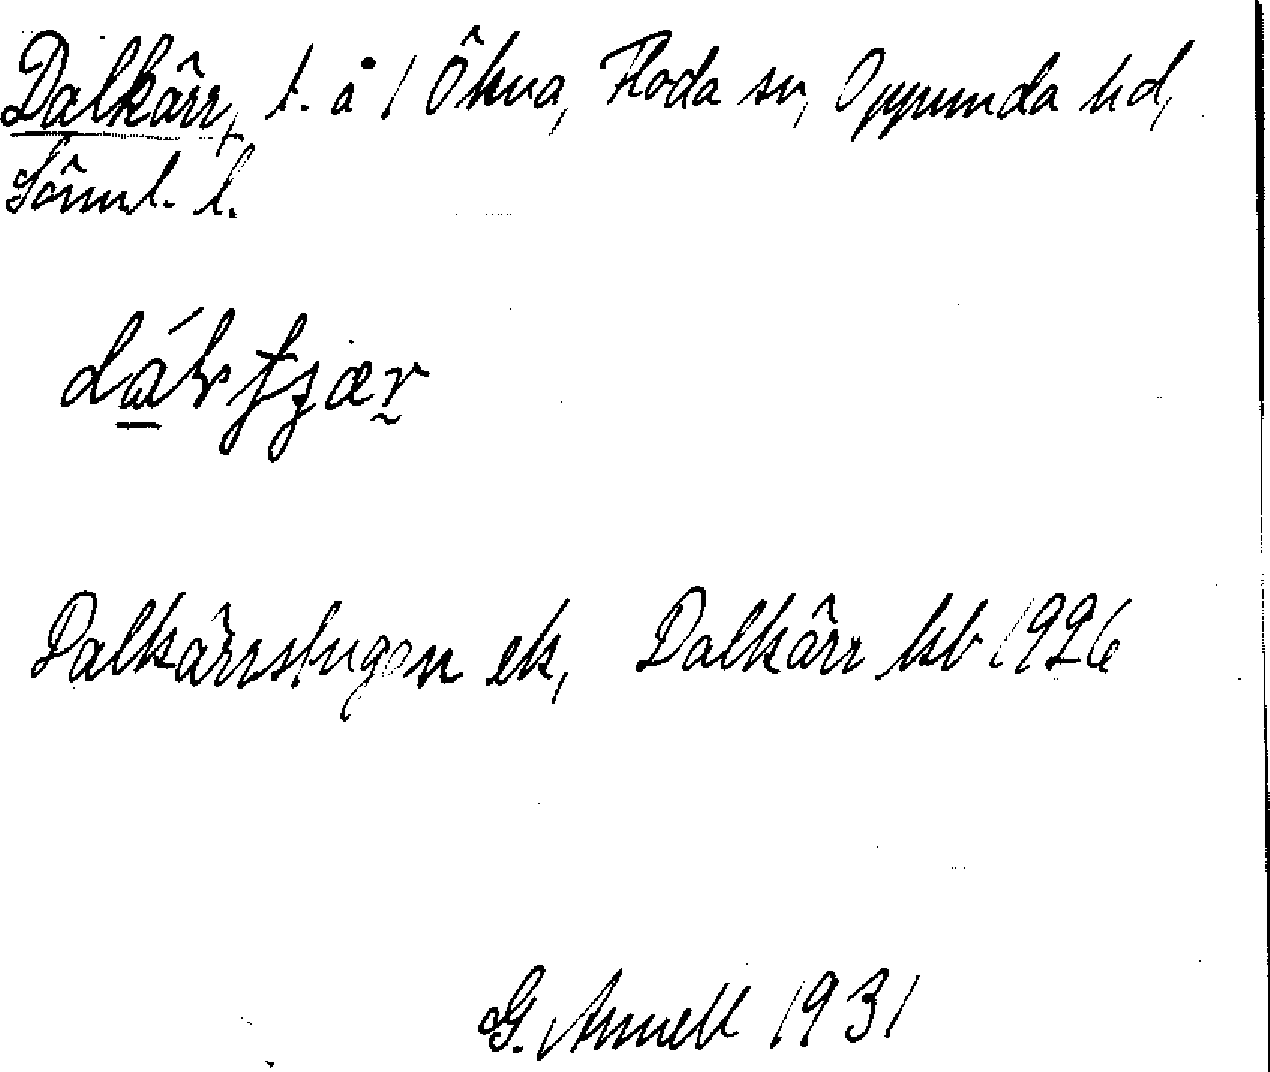 Dalkärr, t. å 1 Ökna, Floda sn, Oppunda hd,
Söml. l.
Dalkärrstugan ek, Dalkärr kb 1926
G. Annell 1931